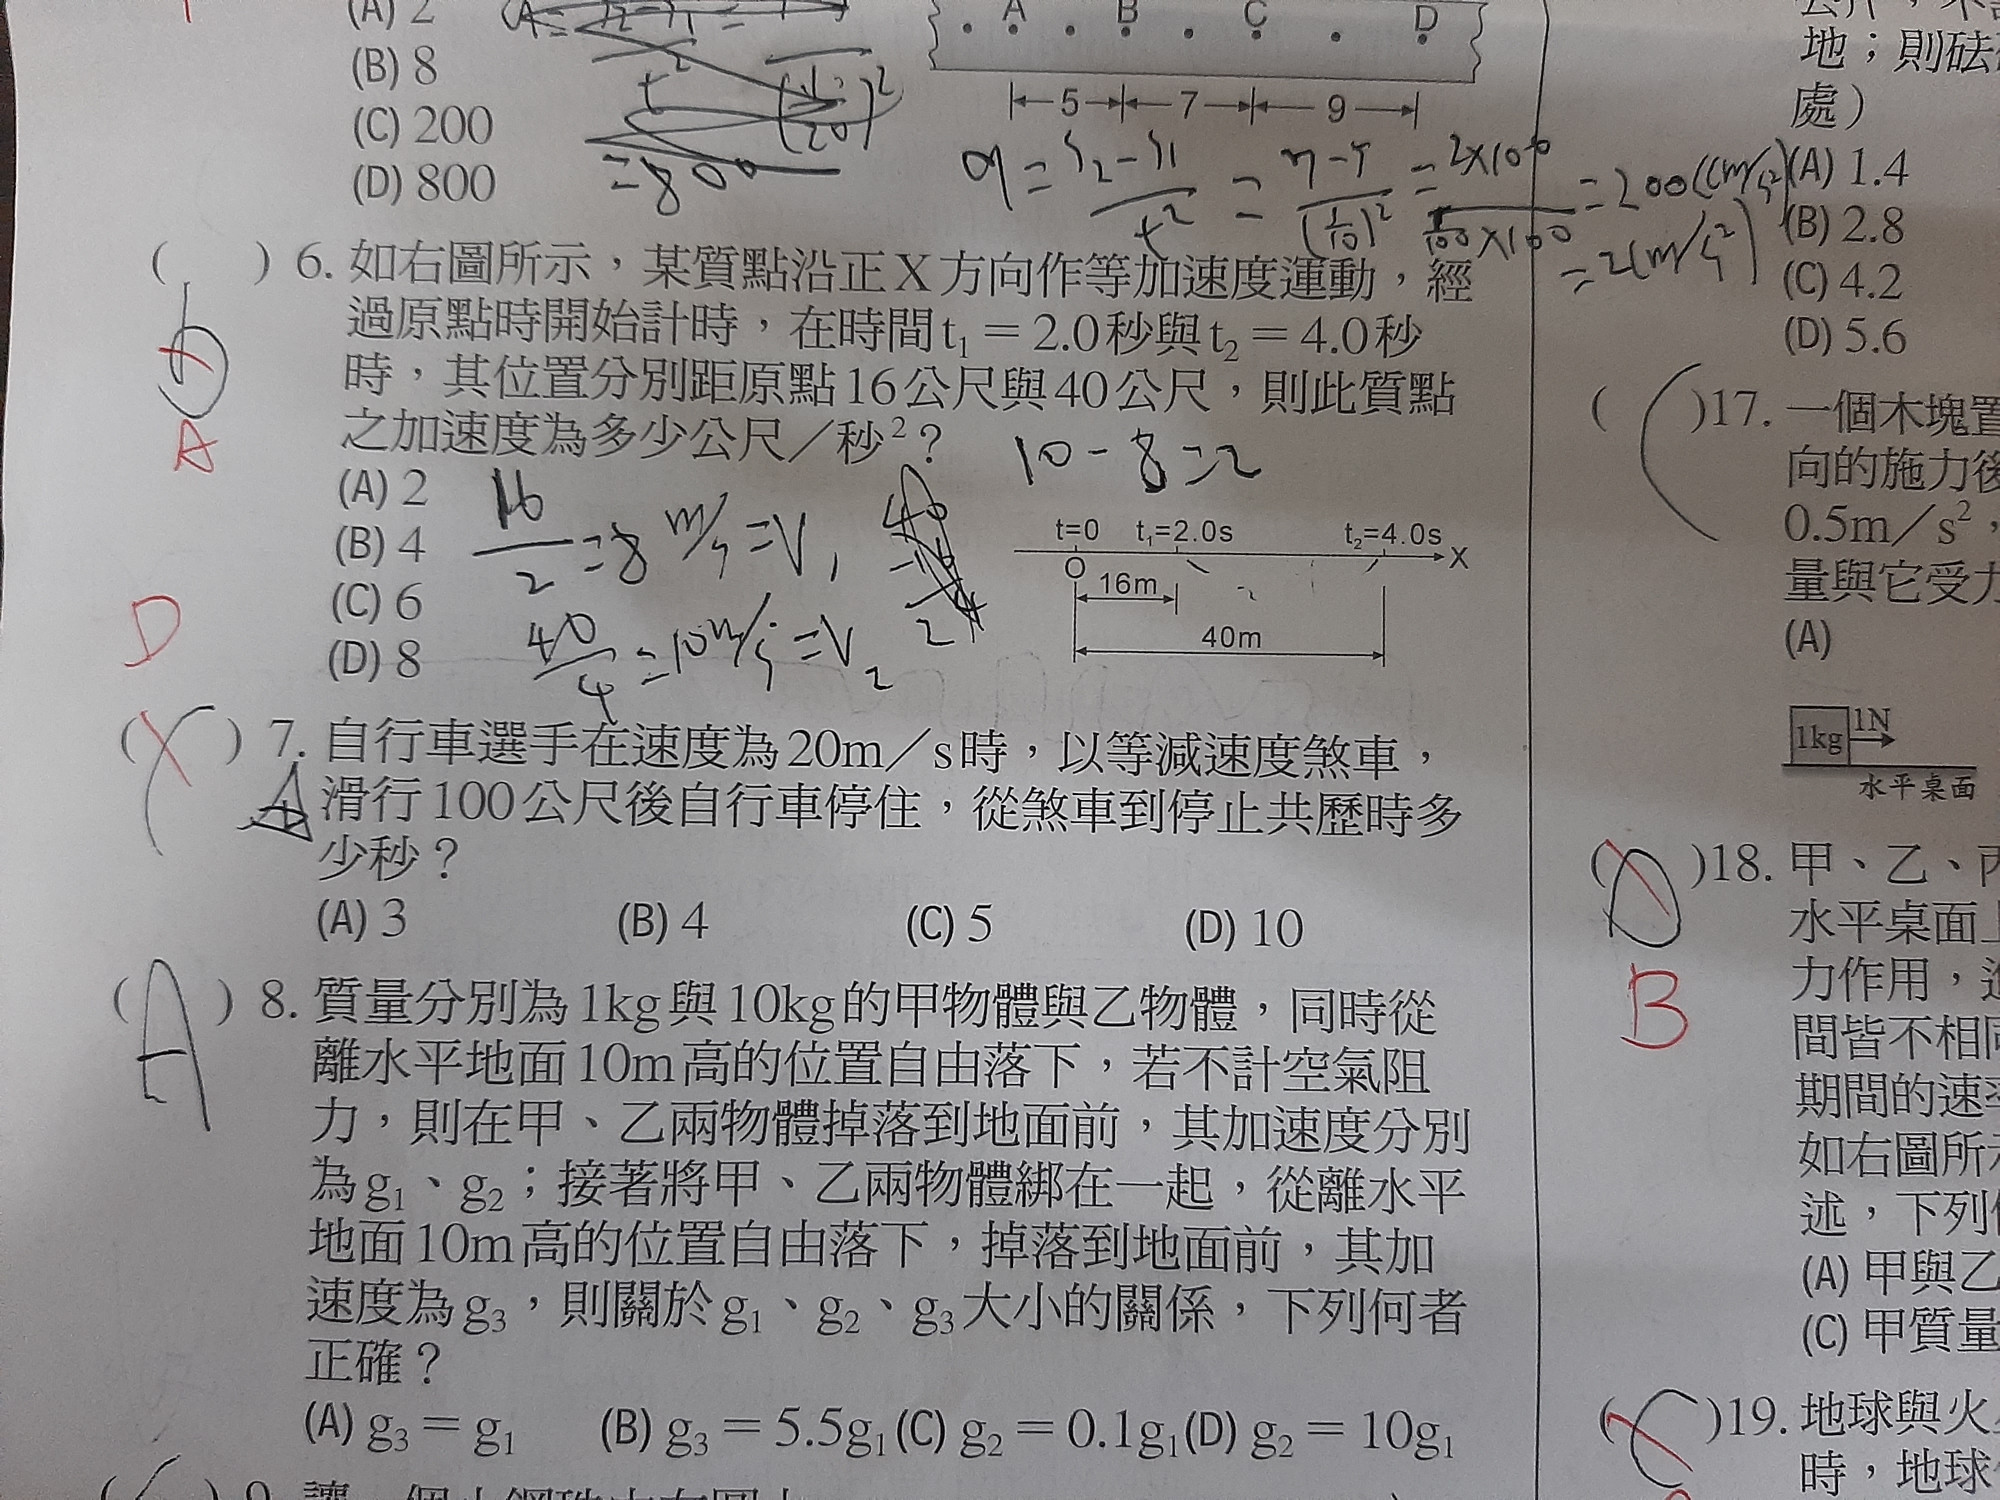 (A) 2
(B) 8
(C) 200
(D) 800
A B C D
5 7 9
=800
a = S2-S1 / t² = 7-5 / (1/10)² = 2×100 / 1/100×100 = 200(cm/s²)
=2(m/s²)
( ) 6. 如右圖所示，某質點沿正X方向作等加速度運動，經
過原點時開始計時，在時間t₁＝2.0秒與t₂＝4.0秒
時，其位置分別距原點16公尺與40公尺，則此質點
之加速度為多少公尺／秒²？
A
10-8=2
(A) 2
(B) 4
(C) 6
(D) 8
16/2 =8 m/s =V₁
40/4 =10 m/s =V₂
t=0 t₁=2.0s t₂=4.0s
O X
16m
40m
D
( ) 7. 自行車選手在速度為20m／s時，以等減速度煞車，
滑行100公尺後自行車停住，從煞車到停止共歷時多
少秒？
(A) 3 (B) 4 (C) 5 (D) 10
(A) 8. 質量分別為1kg與10kg的甲物體與乙物體，同時從
離水平地面10m高的位置自由落下，若不計空氣阻
力，則在甲、乙兩物體掉落到地面前，其加速度分別
為g₁、g₂；接著將甲、乙兩物體綁在一起，從離水平
地面10m高的位置自由落下，掉落到地面前，其加
速度為g₃，則關於g₁、g₂、g₃大小的關係，下列何者
正確？
(A) g₃＝g₁ (B) g₃＝5.5g₁ (C) g₂＝0.1g₁ (D) g₂＝10g₁
地；則砝
處）
(A) 1.4
(B) 2.8
(C) 4.2
(D) 5.6
( )17. 一個木塊置
向的施力後
0.5m／s²，
量與它受力
(A)
1kg 1N
水平桌面
( )18. 甲、乙、丙
水平桌面上
力作用，
B
間皆不相同
期間的速率
如右圖所示
述，下列
(A) 甲與乙
(C) 甲質量
( )19. 地球與火
時，地球